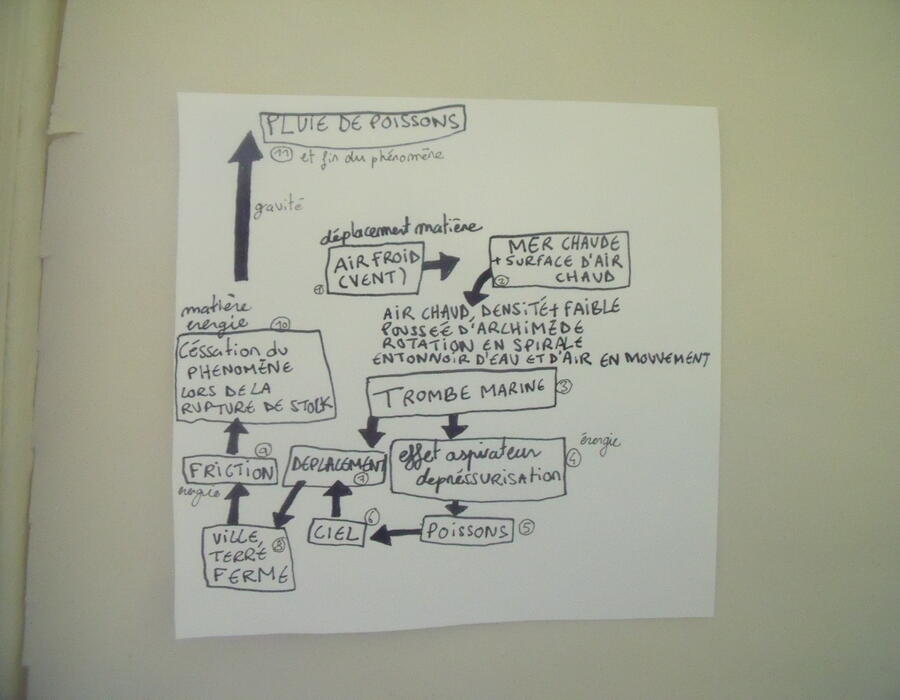 PLUIE DE POISSONS
11 et fin du phénomène
gravité
déplacement matière
AIR FROID
(VENT)
1
MER CHAUDE
+ SURFACE D'AIR
CHAUD
2
AIR CHAUD, DENSITÉ + FAIBLE
POUSSEÉ D'ARCHIMÈDE
ROTATION EN SPIRALE
ENTONNOIR D'EAU ET D'AIR EN MOUVEMENT
TROMBE MARINE 3
matière
energie 10
Céssation du
PHENOMÈNE
LORS DE LA
RUPTURE DE STOCK
énergie
effet aspirateur
depréssurisation
4
9
FRICTION
energie
DEPLACEMENT
7
VILLE,
TERRE
FERME
8
CIEL
6
POISSONS 5